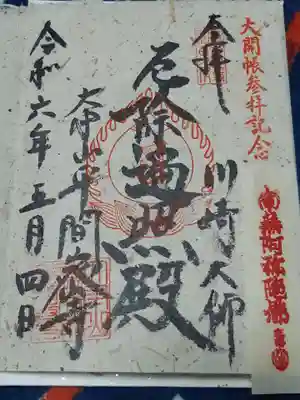 大開帳参拝記念
奉拝
川崎大師
厄除遍照殿
大本山平間寺
令和六年五月四日
南無阿弥陀佛